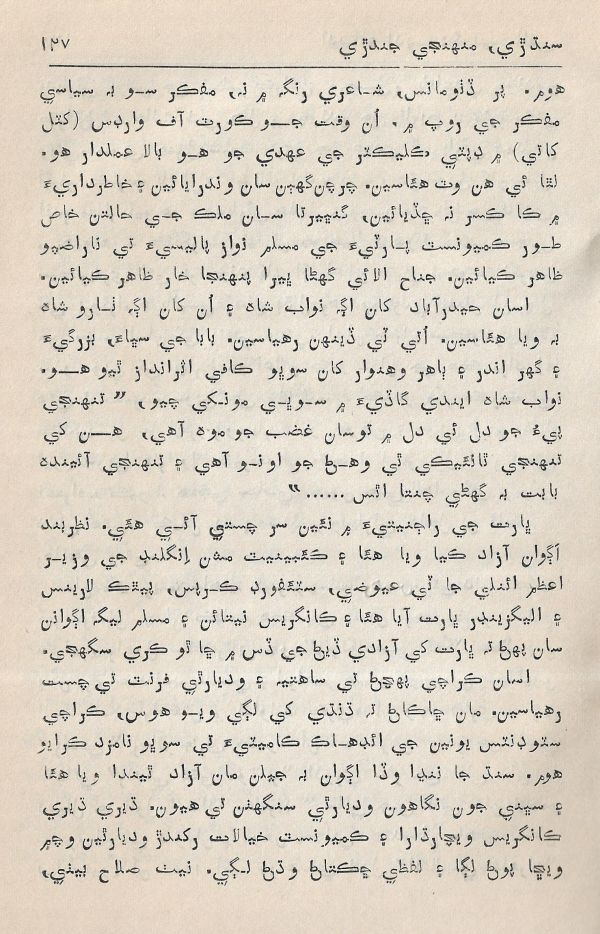 سنڌڙي، منهنجي جندڙي ۱۲۷
هوم. پر ڏٺومانس، شاعري رنگہ ۾ نہ، مفڪر سو بہ سياسي
مفڪر جي روپ ۾. اُن وقت جو ڪورٽ آف وارڊس (ڪٽل
کاتي) ۾ ڊپٽي ڪليڪٽر جي عهدي جو هو بالا عملدار هو.
لٿا ئي هن وٽ هئاسين. چرچن گهٻن سان وندرايائين ۽ خاطرداريءَ
۾ ڪا ڪسر نہ ڇڏيائين، گنڀيرتا سان ملڪ جي حالتن خاص
طور ڪميونسٽ پارٽيءَ جي مسلم نواز پاليسيءَ تي ناراضپو
ظاهر ڪيائين. جناح الائي گهڻا ڀيرا پنهنجا خار ظاهر ڪيائين.
اسان حيدرآباد کان اڳہ نواب شاہ ۽ اُن کان اڳہ ٺارو شاہ
بہ ويا هئاسين. اُتي ٽي ڏينهن رهياسين. بابا جي سڀاءَ، بزرگيءَ
۽ گهر اندر ۽ ٻاهر وهنوار کان سوڀو ڪافي اثرانداز ٿيو هو.
نواب شاہ ايندي گاڏيءَ ۾ سوڀي مونکي چيو، ”تنهنجي
پيءُ جو دل ئي دل ۾ توسان غضب جو موہ آهي، هن کي
تنهنجي ٽائيڪي تي وهڻ جو اونو آهي ۽ تنهنجي آئيندہ
بابت بہ گهڻي چنتا اٿس ......“
ڀارت جي راڄنيتيءَ ۾ نئين سر چستي آئي هئي. نظربند
اڳواڻ آزاد ڪيا ويا هئا ۽ ڪئبينيٽ مشن اِنگلنڊ جي وزير
اعظم ائٽلي جا ٽي عيوضي، سٽئفورڊ ڪرپس، پيٿڪ لارينس
۽ اليگزينڊر ڀارت آيا هئا ۽ ڪانگريس نيتائن ۽ مسلم ليگہ اڳواڻن
سان پهڻ تہ ڀارت کي آزادي ڏيڻ جي ڏس ۾ ڇا ٿو ڪري سگهجي.
اسان ڪراچي پهچڻ تي ساهتيہ ۽ وديارٿي فرنٽ تي چست
رهياسين. مان ڇاڪاڻ تہ ڌنڌي کي لڳي ويو هوس، ڪراچي
سٽوڊنٽس يونين جي ائڊهاڪ ڪاميٽيءَ تي سوڀو نامزد ڪرايو
هوم. سنڌ جا ننڍا وڏا اڳواڻ بہ جيلن مان آزاد ٿيندا ويا هئا
۽ سڀني جون نگاهون وديارٿي سنگهٺن تي هيون. ڌيري ڌيري
ڪانگريس ويچارڌارا ۽ ڪميونسٽ خيالات رکندڙ وديارٿين وچ ۾
ويڇا پوڻ لڳا ۽ لفظي ڇڪتاڻ وڌڻ لڳي. نيٺ صلاح بيٺي،